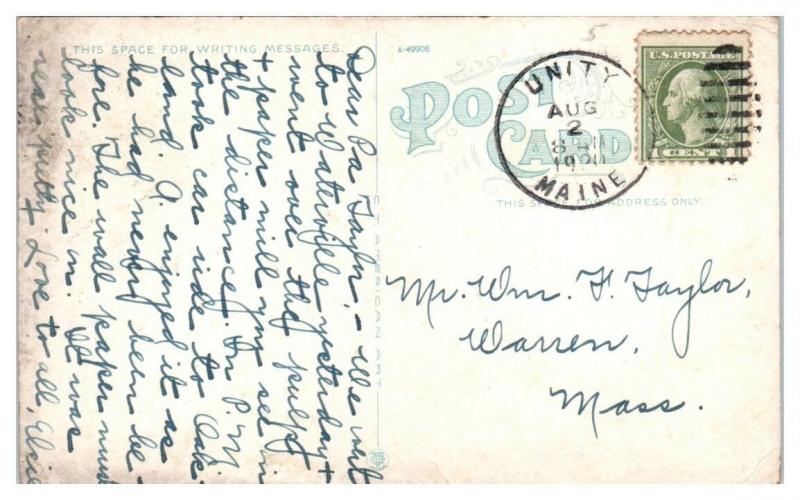 THIS SPACE FOR WRITING MESSAGES.
A-49906
5
POST
CARD
THIS SPACE FOR ADDRESS ONLY.
UNITY
AUG
2
8
1920
MAINE
U.S. POSTAGE
1 CENT 1
EST AMERICAN ART
Dear Pa Taylor, - We went
to Waterville yesterday +
went over the pulp
+ paper mill you see in
the distance. In P.M.
took car ride to Oak-
land. A. enjoyed it as
he had never been be-
fore. The wall paper must
look nice in. It was
real pretty. Love to all,
+
Mr. Wm. F. Taylor,
Warren,
Mass.